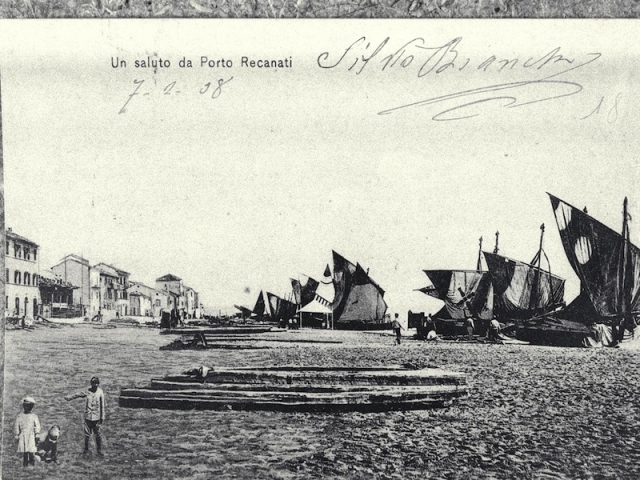 Un saluto da Porto Recanati
Silvio Bianchi
7-2-08
18